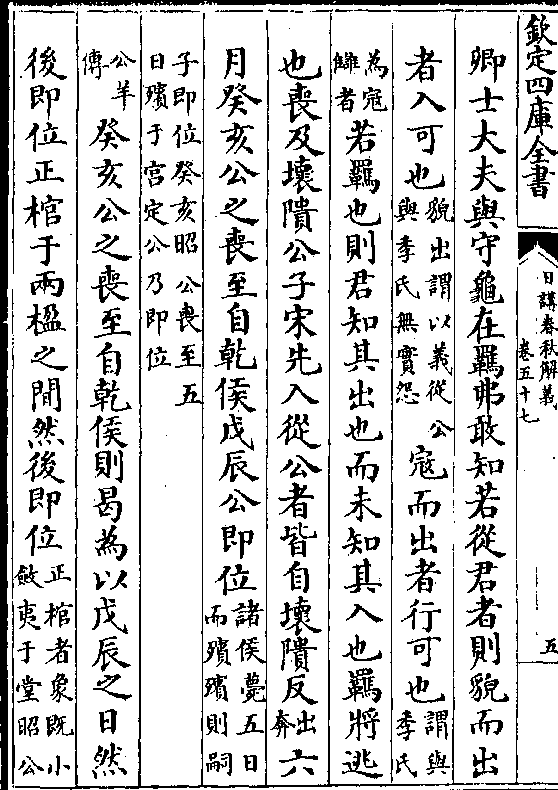 欽定四庫全書
日講春秋解義
卷五十七
五
卿士大夫與守龜在羈弗敢知若從君者則貌而出
者入可也貌出謂以義從公與季氏無實怨寇而出者行可也謂與季氏
為寇讎者若羈也則君知其出也而未知其入也羈將逃
也喪及壞隤公子宋先入從公者皆自壞隤反出奔六
月癸亥公之喪至自乾侯戊辰公即位諸侯薨五日而殯殯則嗣
子即位癸亥昭公喪至五日殯于宮定公乃即位
公羊傳癸亥公之喪至自乾侯則曷為以戊辰之日然
後即位正棺于兩楹之間然後即位正棺者象既小斂夷于堂昭公